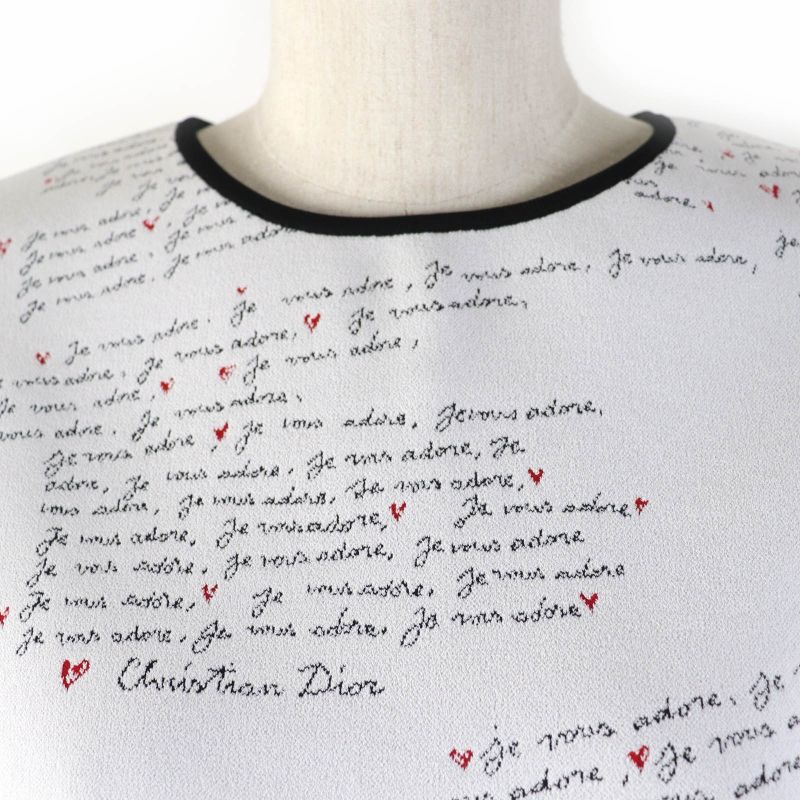 Je vous adore
Je vous adore, Je
Je vous adore, Je vous adore
Je vous adore. Je vous adore
Je vous adore. Je vous adore.
Je vous adore
Je vous adore
adore.
Je vous adore. Je vous adore, Je vous adore, Je vous adore,
Je vous adore, Je vous adore,
vous adore, Je vous adore,
Je vous adore, Je vous adore,
vous adore. Je vous adore.
Je vous adore, Je vous adore, Je vous adore.
adore, Je vous adore, Je vous adore, Je
vous adore, Je vous adore, Je vous adore,
Je vous adore, Je vous adore, Je vous adore
Je vous adore, Je vous adore, Je vous adore
Je vous adore, Je vous adore, Je vous adore
Je vous adore, Je vous adore. Je vous adore
Christian Dior
je vous adore, Je
vous adore, Je vous
adore